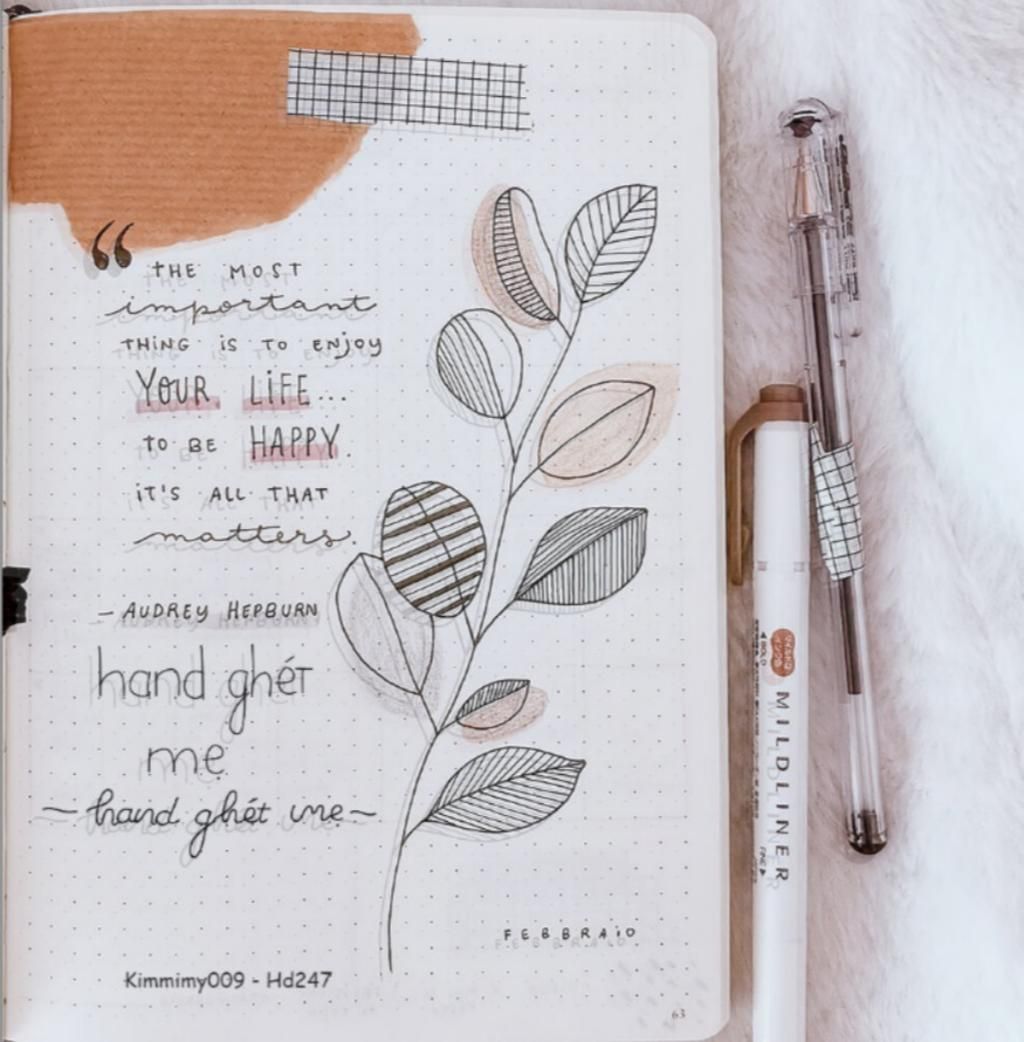 “ THE MOST
important
THING is TO ENJOY
YOUR LiFE...
TO BE HAPPY.
iT'S ALL THAT
matters.
— AUDREY HEPBURN
hand ghét
me
~ hand ghét me ~
FEBBRAiO
Kimmimy009 - Hd247
63
BOLD
MILDLINER
FINE